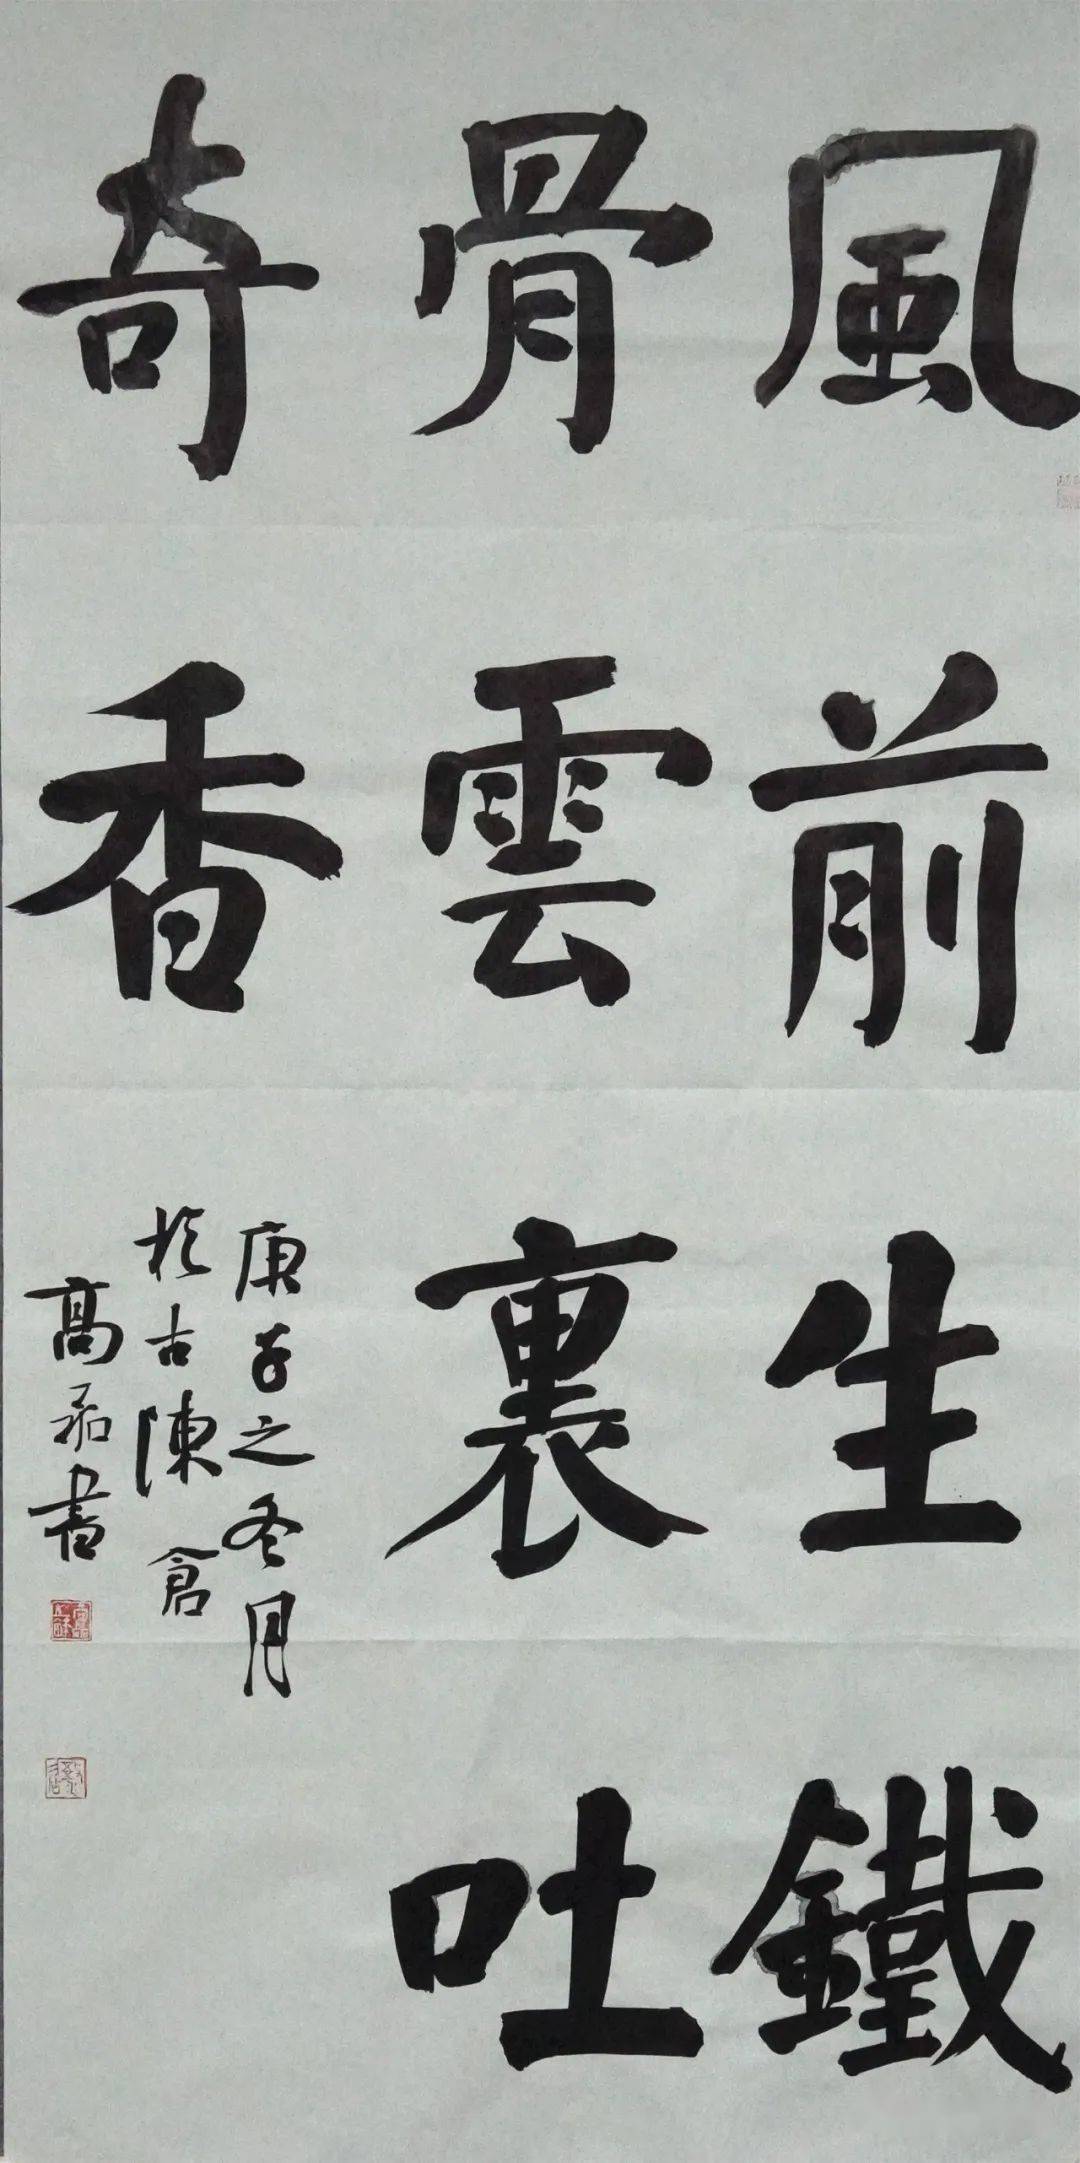 風前生鐵
骨雲裏吐
奇香
庚子之冬月
於古陳倉
高 書